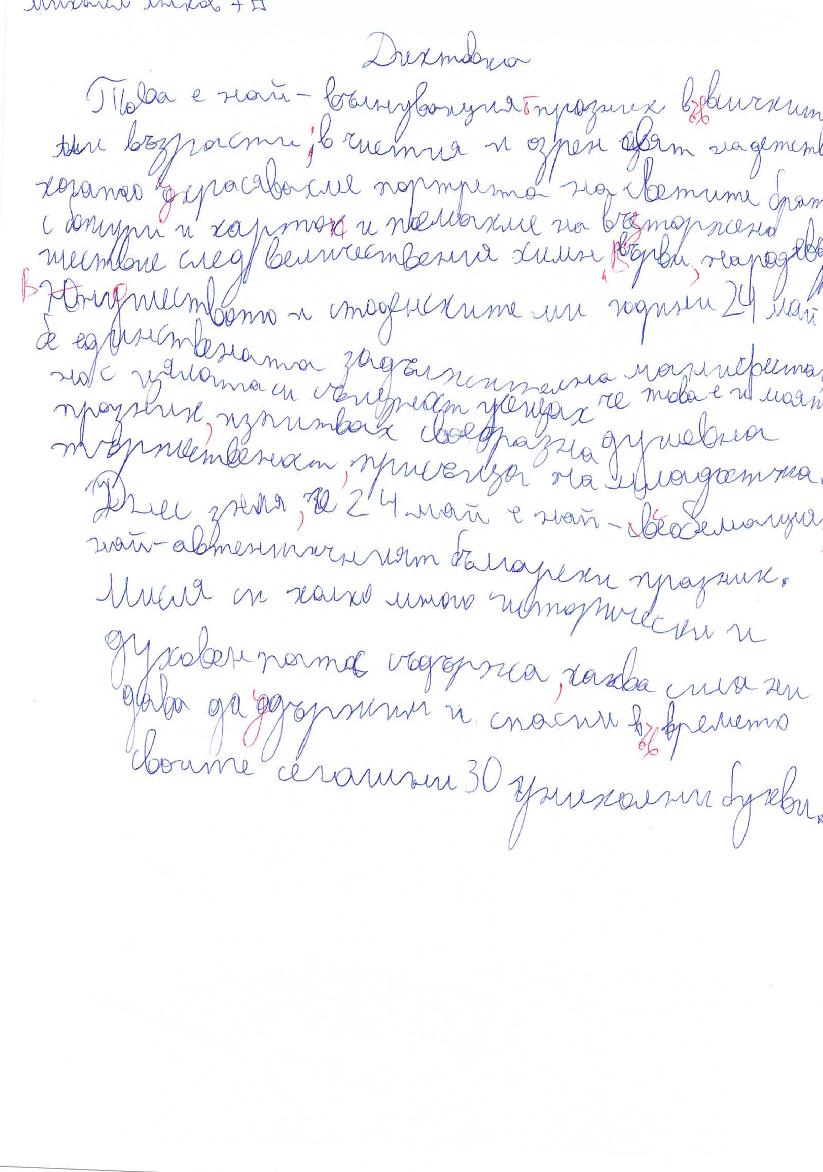 Диктовка
Това е най-вълнуващия празник във всички
ми възрасти, в чистия и озрен свят на детств
когато украсявахме портрета на светите брат
с божури и картон и поемахме на въсторжено
шествие след величествения химн „Върви, народе
В Юношеството и студенските ми години 24 май
бе единствената задължителна манифеста
но с цялата си същност усещах че това е и моят
празник, изпитвах своеобразна душевна
тържественост, присъща на младостта.
Днес зная, че 24 май е най-всеобемащия,
най-автентичният български празник.
Мисля си колко много исторически и
духовен потос съдържа, каква сила ни
дава да удържим и спасим във времето
своите сегашни 30 уникални букви.